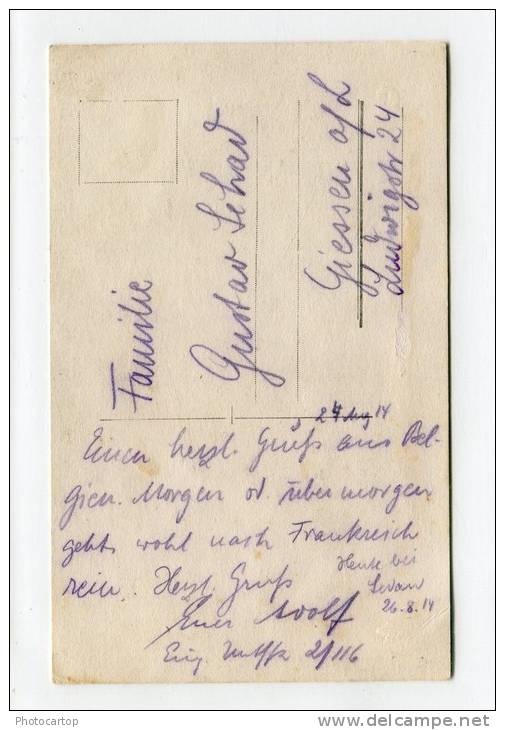 Familie
Gustav Schad
Giessen a/L
Ludwigstr 24
24 Aug 14
Einen herzl. Gruß aus Bel-
gien. Morgen od. übermorgen
gehts wohl nach Frankreich
rein. Herzl. Gruß
Euer Adolf
2/116
Heute bei
Sedan
26.8.14
Photocartop
delcampe.net